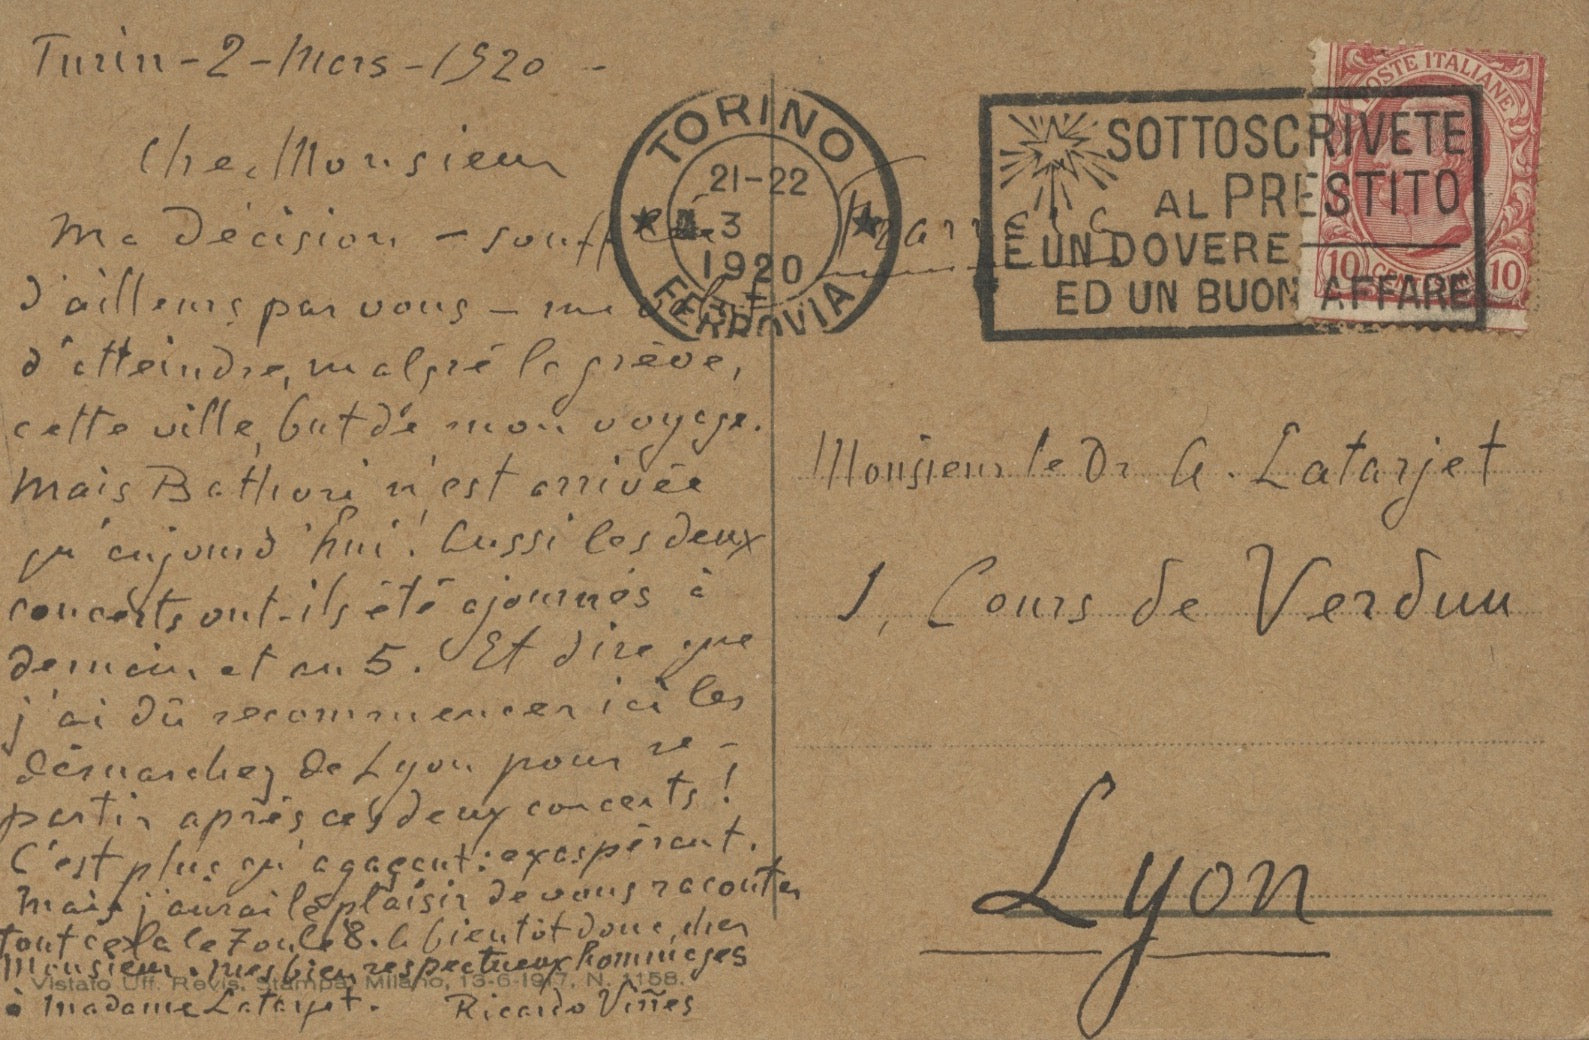 Turin - 2 - Mars - 1920 -
Cher Monsieur
Ma décision -
d'ailleurs par vous - me
d'atteindre, malgré la grève,
cette ville, but de mon voyage.
Mais Bathori n'est arrivée
qu'aujourd'hui! Aussi les deux
concerts ont-ils été ajournés à
demain et au 5. Et dire que
j'ai dû recommencer ici les
démarches de Lyon pour re-
partir après ces deux concerts!
C'est plus qu'agaçant: exaspérant.
Mais j'aurai le plaisir de vous raconter
tout cela le 7 ou le 8. A bientôt donc, cher
Monsieur. Mes bien respectueux hommages
à Madame Latarjet. Ricardo Viñes
Vistato Uff. Revis. Stampa, Milano, 13-6-1917, N. 1158.
TORINO
21-22
3
1920
FERROVIA
SOTTOSCRIVETE
AL PRESTITO
È UN DOVERE
ED UN BUON AFFARE
POSTE ITALIANE
10 10
Monsieur le Dr A. Latarjet
1, Cours de Verdun
Lyon